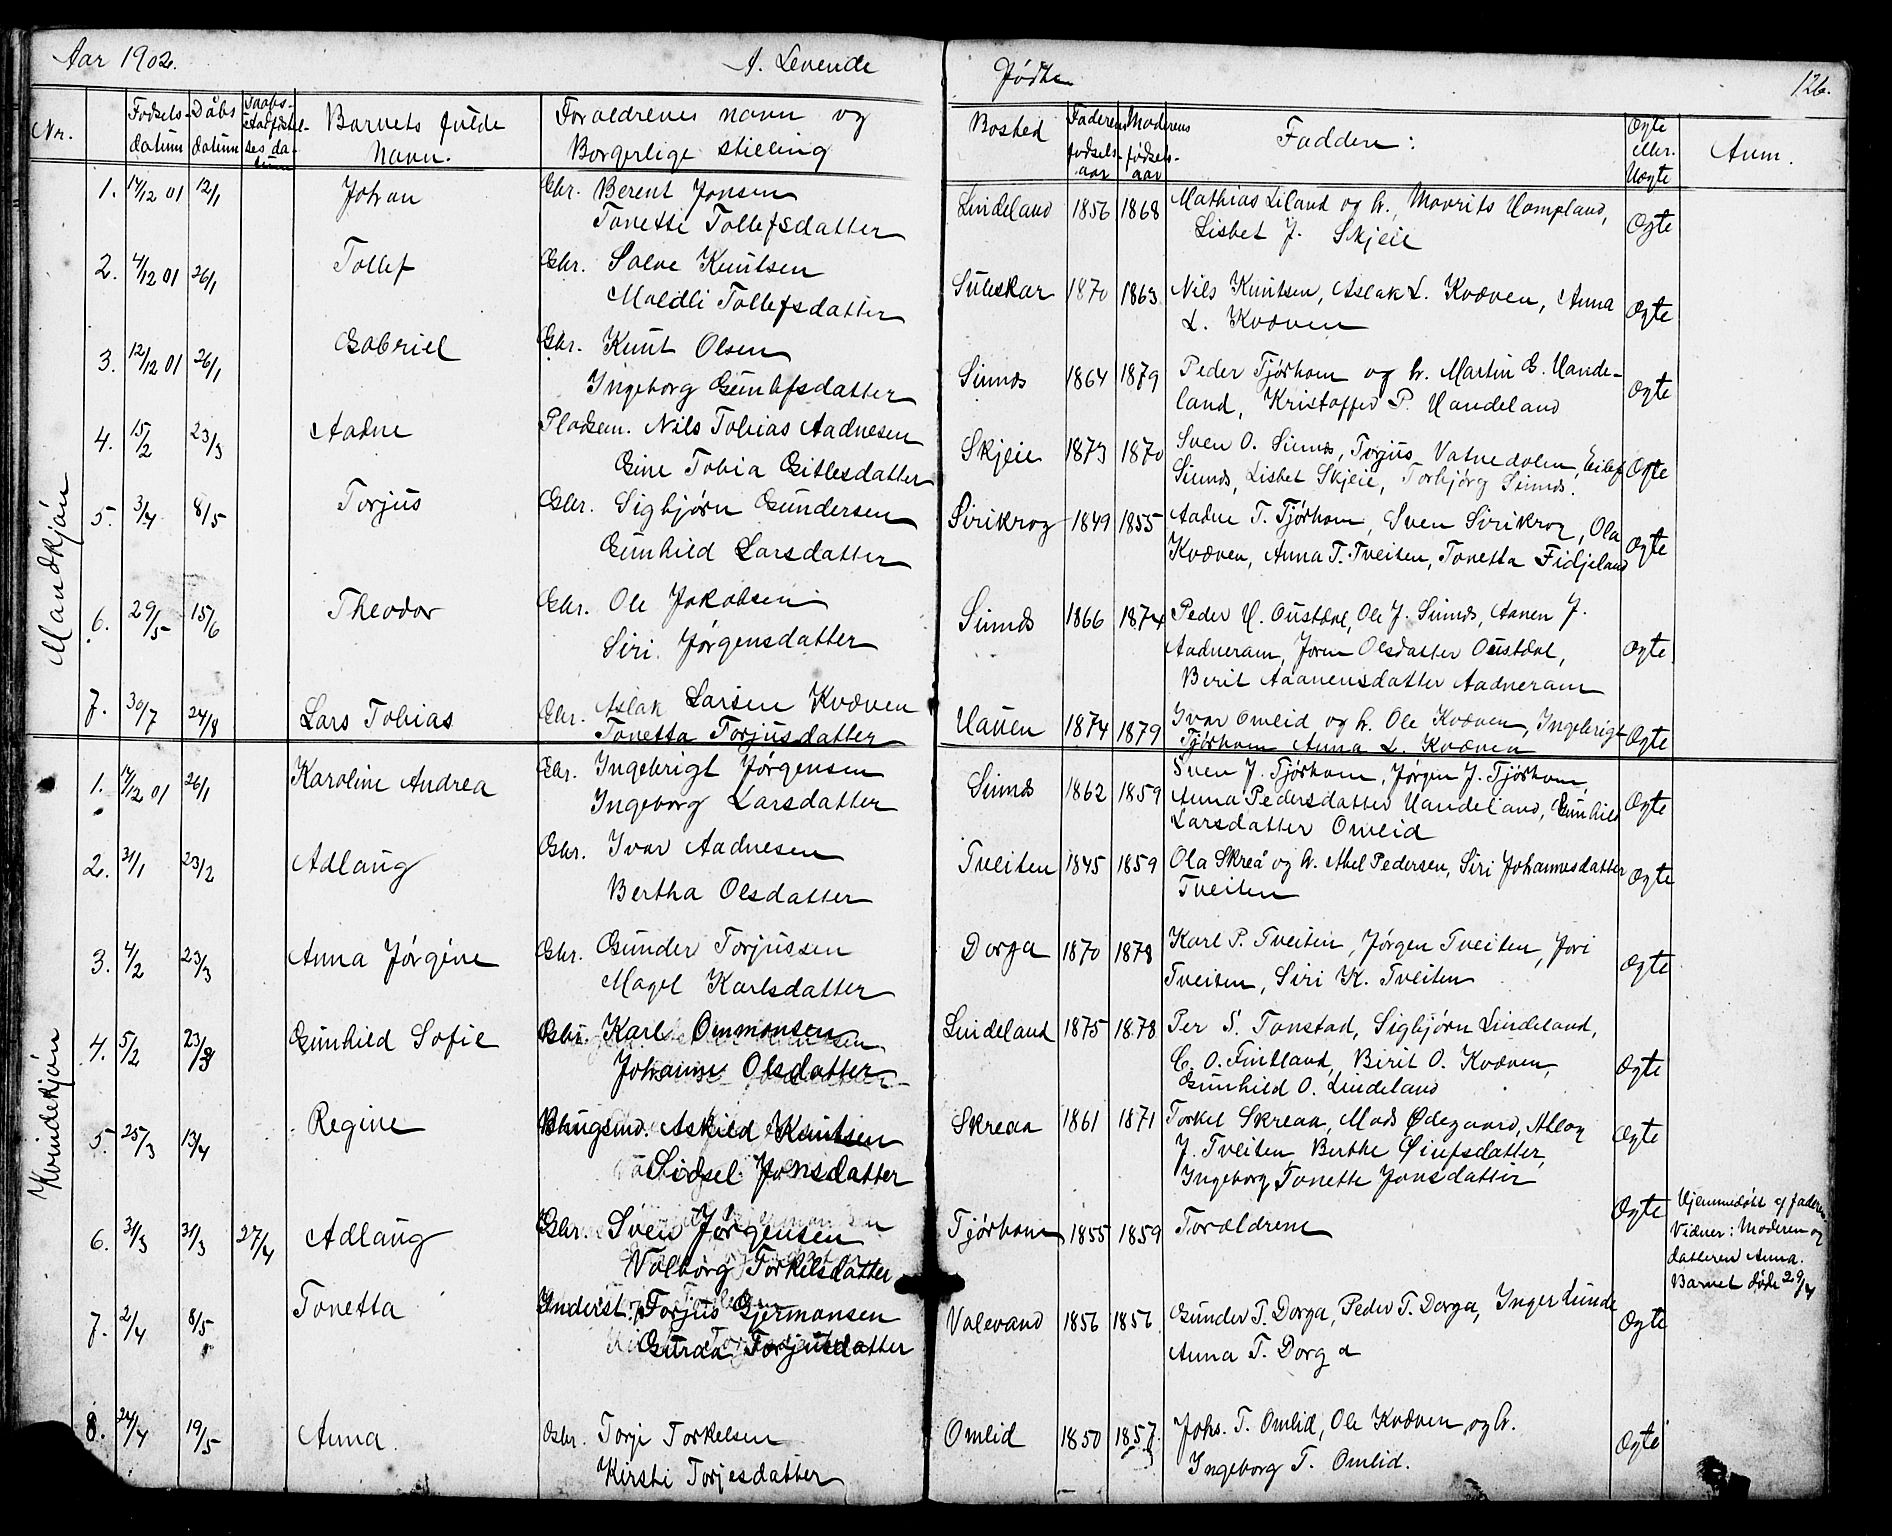 Aar 1902. A. Levende Fødte 126.
Nr. Fødsels- datum Dåbs datum Daabs- Barnets fulde Navn. Forældrenes navn og Borgerlige stilling Bosted Faderens fødsels- aar Moderens fødsels- aar Faddere: Ægte eller Uægte Anm.
Mandkjøn
1. 14/12 01 12/1 Johan Gbr. Berent Jonsen Lindeland 1856 1868 Mathias Liland og h., Mavrits Hompland, Ægte
Tonette Tollefsdatter Lisbet J. Skjeie
2. 4/12 01 26/1 Tollef Gbr. Salve Knutsen Suleskar 1870 1863 Nils Knutsen, Aslak L. Kvæven, Anna Ægte
Moldli Tollefsdatter L. Kvæven
3. 12/12 01 26/1 Gabriel Gbr. Knut Olsen Sinnes 1864 1879 Peder Tjørhom og h. Martin G. Hande- Ægte
Ingeborg Gunlefsdatter land, Kristoffer P. Handeland
4. 15/2 23/3 Aadne Pladsem. Nils Tobias Aadnesen Skjeie 1873 1870 Sven O. Sinnes, Torjus Vatnedalen, Eilef Ægte
Gine Tobia Gitlesdatter Sinnes, Lisbet Skjeie, Torbjørg Sinnes.
5. 3/4 8/5 Torjus Gbr. Sigbjørn Gundersen Sirikrog 1849 1855 Aadne T. Tjørhom, Sven Sirikrog, Ola Ægte
Gunhild Larsdatter Kvæven, Anna T. Tveiten, Tonetta Fidjeland
6. 29/5 15/6 Theodor Gbr. Ole Jakobsen Sinnes 1866 1874 Peder H. Ousdal, Ole J. Sinnes, Aanen J. Ægte
Siri Jørgensdatter Aadneram, Joren Olsdatter Ousdal,
Berit Aaanensdatter Aadneram
7. 30/7 24/8 Lars Tobias Gbr. Aslak Larsen Kvæven Hauen 1874 1879 Ivar Omlid og h. Ole Kvæven, Ingebrigt Ægte
Tonetta Torjusdatter Tjørhom Anna L. Kvæven
Kvindekjøn
1. 14/12 01 26/1 Karoline Andrea Gbr. Ingebrigt Jørgensen Sinnes 1862 1859 Sven J. Tjørhom, Jørgen J. Tjørhom, Ægte
Ingeborg Larsdatter Anna Pedersdatter Handeland, Gunhild
Larsdatter Omlid
2. 31/1 23/2 Adlaug Gbr. Ivar Aadnesen Tveiten 1845 1859 Ola Skreå og h. Abel Pedersen, Siri Johannesdatter Ægte
Bertha Olsdatter Tveiten
3. 4/2 23/3 Anna Jørgine Gbr. Gunder Torjussen Dorga 1870 1878 Karl P. Tveiten, Jørgen Tveiten, Jori Ægte
Magel Karlsdatter Tveiten, Siri K. Tveiten
4. 5/2 23/3 Gunhild Sofie Gbr. Karl Ommonsen Lindeland 1875 1878 Per S. Tonstad, Sigbjørn Lindeland, Ægte
Johanne Olsdatter C. O. Fintland, Berit O. Kvæven,
Gunhild O. Lindeland
5. 25/3 13/4 Regine Askild Knutsen Skreaa 1861 1871 Torkel Skreaa, Mads Ødegaard, Ægte
Sidsel Jonsdatter J. Tveiten, Berthe
Ingeborg Tonette Jonsdatter
6. 31/3 31/3 27/4 Adlaug Gbr. Sven Jørgensen Tjørhom 1855 1859 Forældrene Ægte Hjemmedøbt af faderen
Valborg Torkelsdatter Vidner: Moderen og
datteren Anna.
Barnet døde 29/4
7. 2/4 8/5 Tonetta Inderst Torjus Gjermonsen Valevand 1856 1856 Gunder T. Dorga, Peder T. Dorga, Inger Lunde Ægte
Guroa Torjusdatter Anna T. Dorga
8. 24/4 19/5 Anna. Gbr. Torje Torkelsen Omlid 1850 1857. Johs. T. Omlid, Ole Kvæven og h. Ægte
Kirsti Torjesdatter Ingeborg T. Omlid.